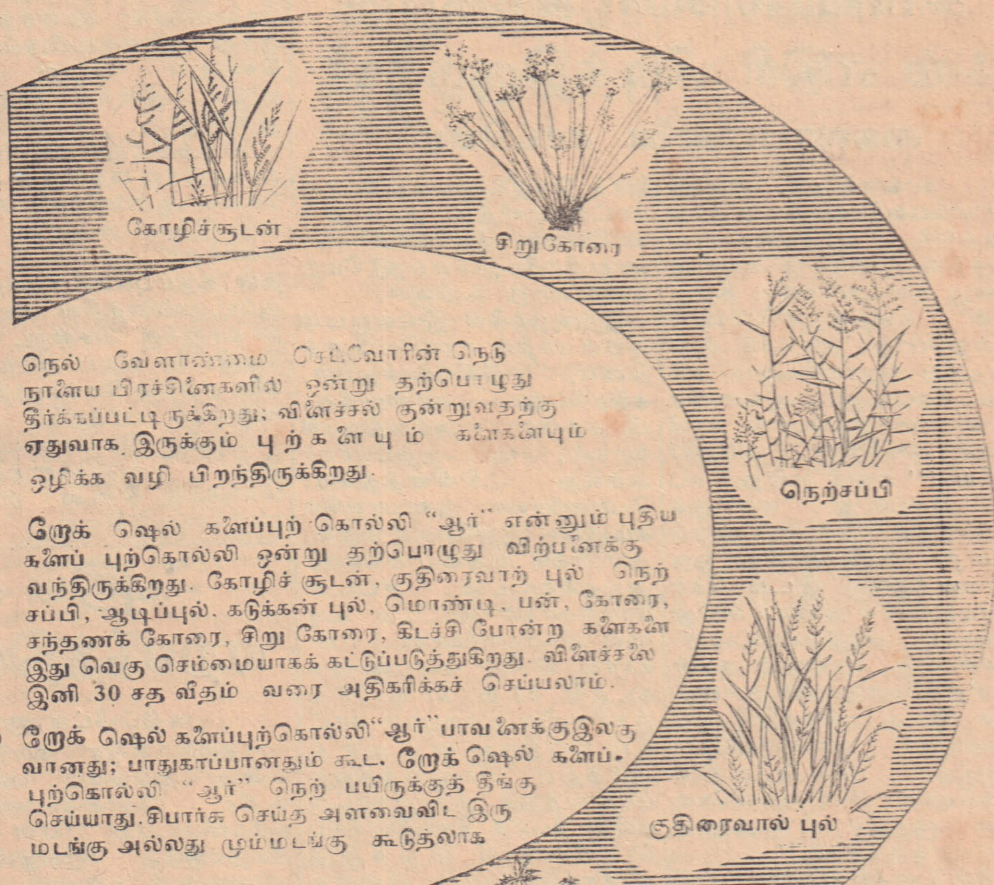 கோழிச்சூடன்
சிறுகோரை
நெற்சப்பி
குதிரைவால் புல்
நெல் வேளாண்மை செய்வோரின் நெடு
நாளைய பிரச்சினைகளில் ஒன்று தற்பொழுது
தீர்க்கப்பட்டிருக்கிறது; விளைச்சல் குன்றுவதற்கு
ஏதுவாக இருக்கும் புற்களையும் களைகளையும்
ஒழிக்க வழி பிறந்திருக்கிறது.
றோக் ஷெல் களைப்புற் கொல்லி “ஆர்” என்னும் புதிய
களைப் புற்கொல்லி ஒன்று தற்பொழுது விற்பனைக்கு
வந்திருக்கிறது. கோழிச் சூடன், குதிரைவாற் புல் நெற்
சப்பி, ஆடிப்புல். கடுக்கன் புல், மொண்டி, பன், கோரை,
சந்தணக் கோரை, சிறு கோரை, கிடச்சி போன்ற களைகளை
இது வெகு செம்மையாகக் கட்டுப்படுத்துகிறது. விளைச்சலை
இனி 30 சத வீதம் வரை அதிகரிக்கச் செய்யலாம்.
றோக் ஷெல் களைப்புற்கொல்லி “ஆர்” பாவனைக்கு இலகு
வானது; பாதுகாப்பானதும் கூட. றோக் ஷெல் களைப்.
புற்கொல்லி “ஆர்” நெற் பயிருக்குத் தீங்கு
செய்யாது. சிபார்சு செய்த அளவைவிட இரு
மடங்கு அல்லது மும்மடங்கு கூடுத்லாக